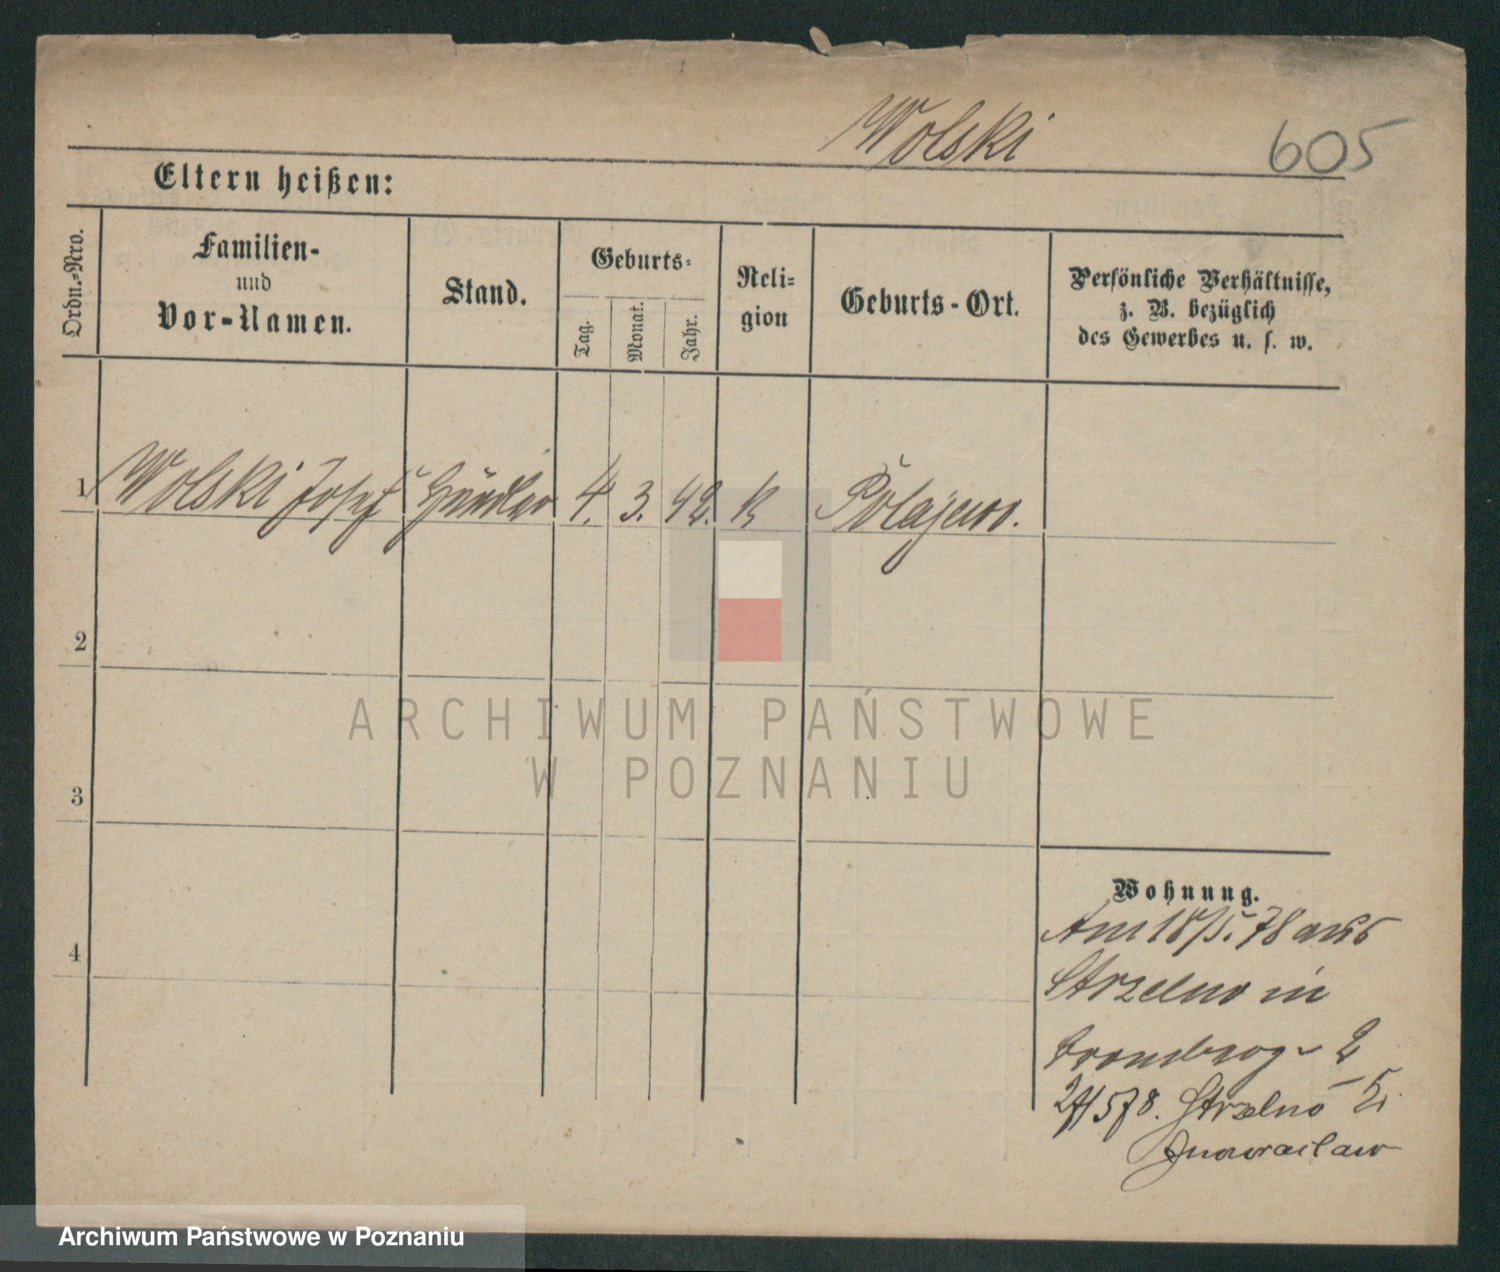 Wolski 605
Eltern heißen:
Ordn.-Nro.
Familien-
und
Vor-Namen.
Stand.
Geburts-
Tag.
Monat.
Jahr.
Reli-
gion
Geburts-Ort.
Persönliche Verhältnisse,
z. B. bezüglich
des Gewerbes u. s. w.
1 Wolski Josef Händler 4. 3. 42. K Polajewo.
2
3
4
Wohnung.
Am 18/5. 78 aus
Strzelno in
2
27/5 78. Strzelno
Inowraclaw
ARCHIWUM PAŃSTWOWE
W POZNANIU
Archiwum Państwowe w Poznaniu